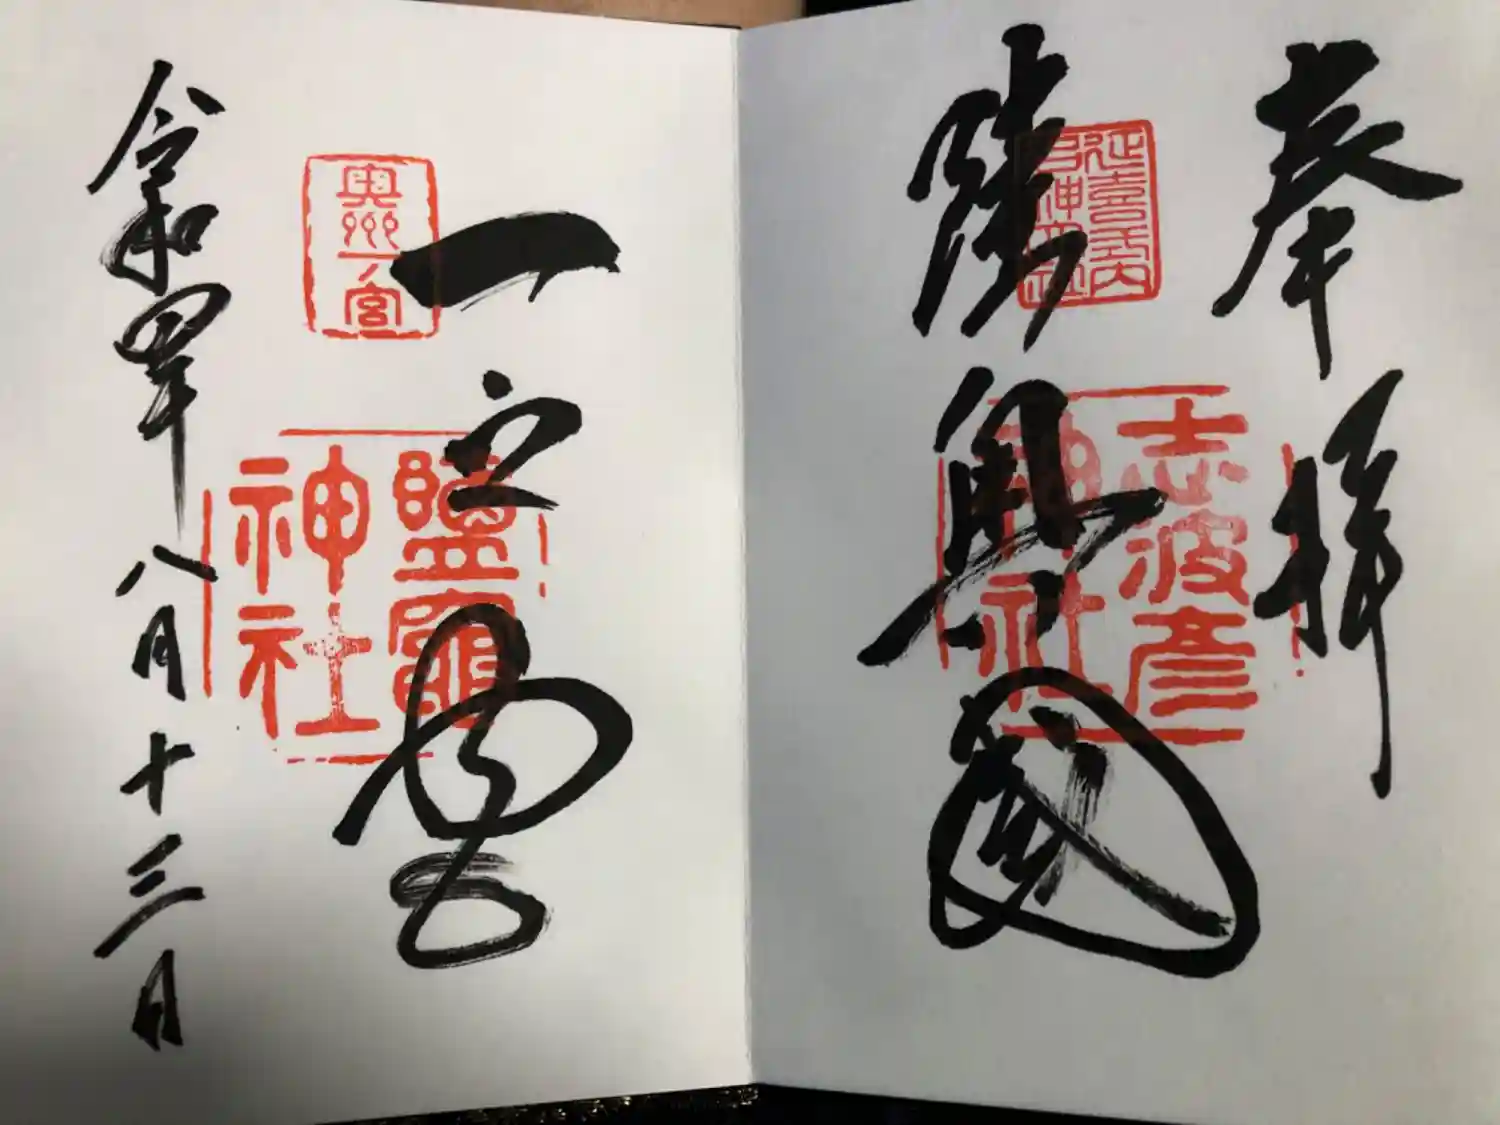 奉拝
陸奥國
延喜式内
名神大社
志波彦
神社
一之宮
奥州一ノ宮
鹽竈
神社
令和四年八月十三日